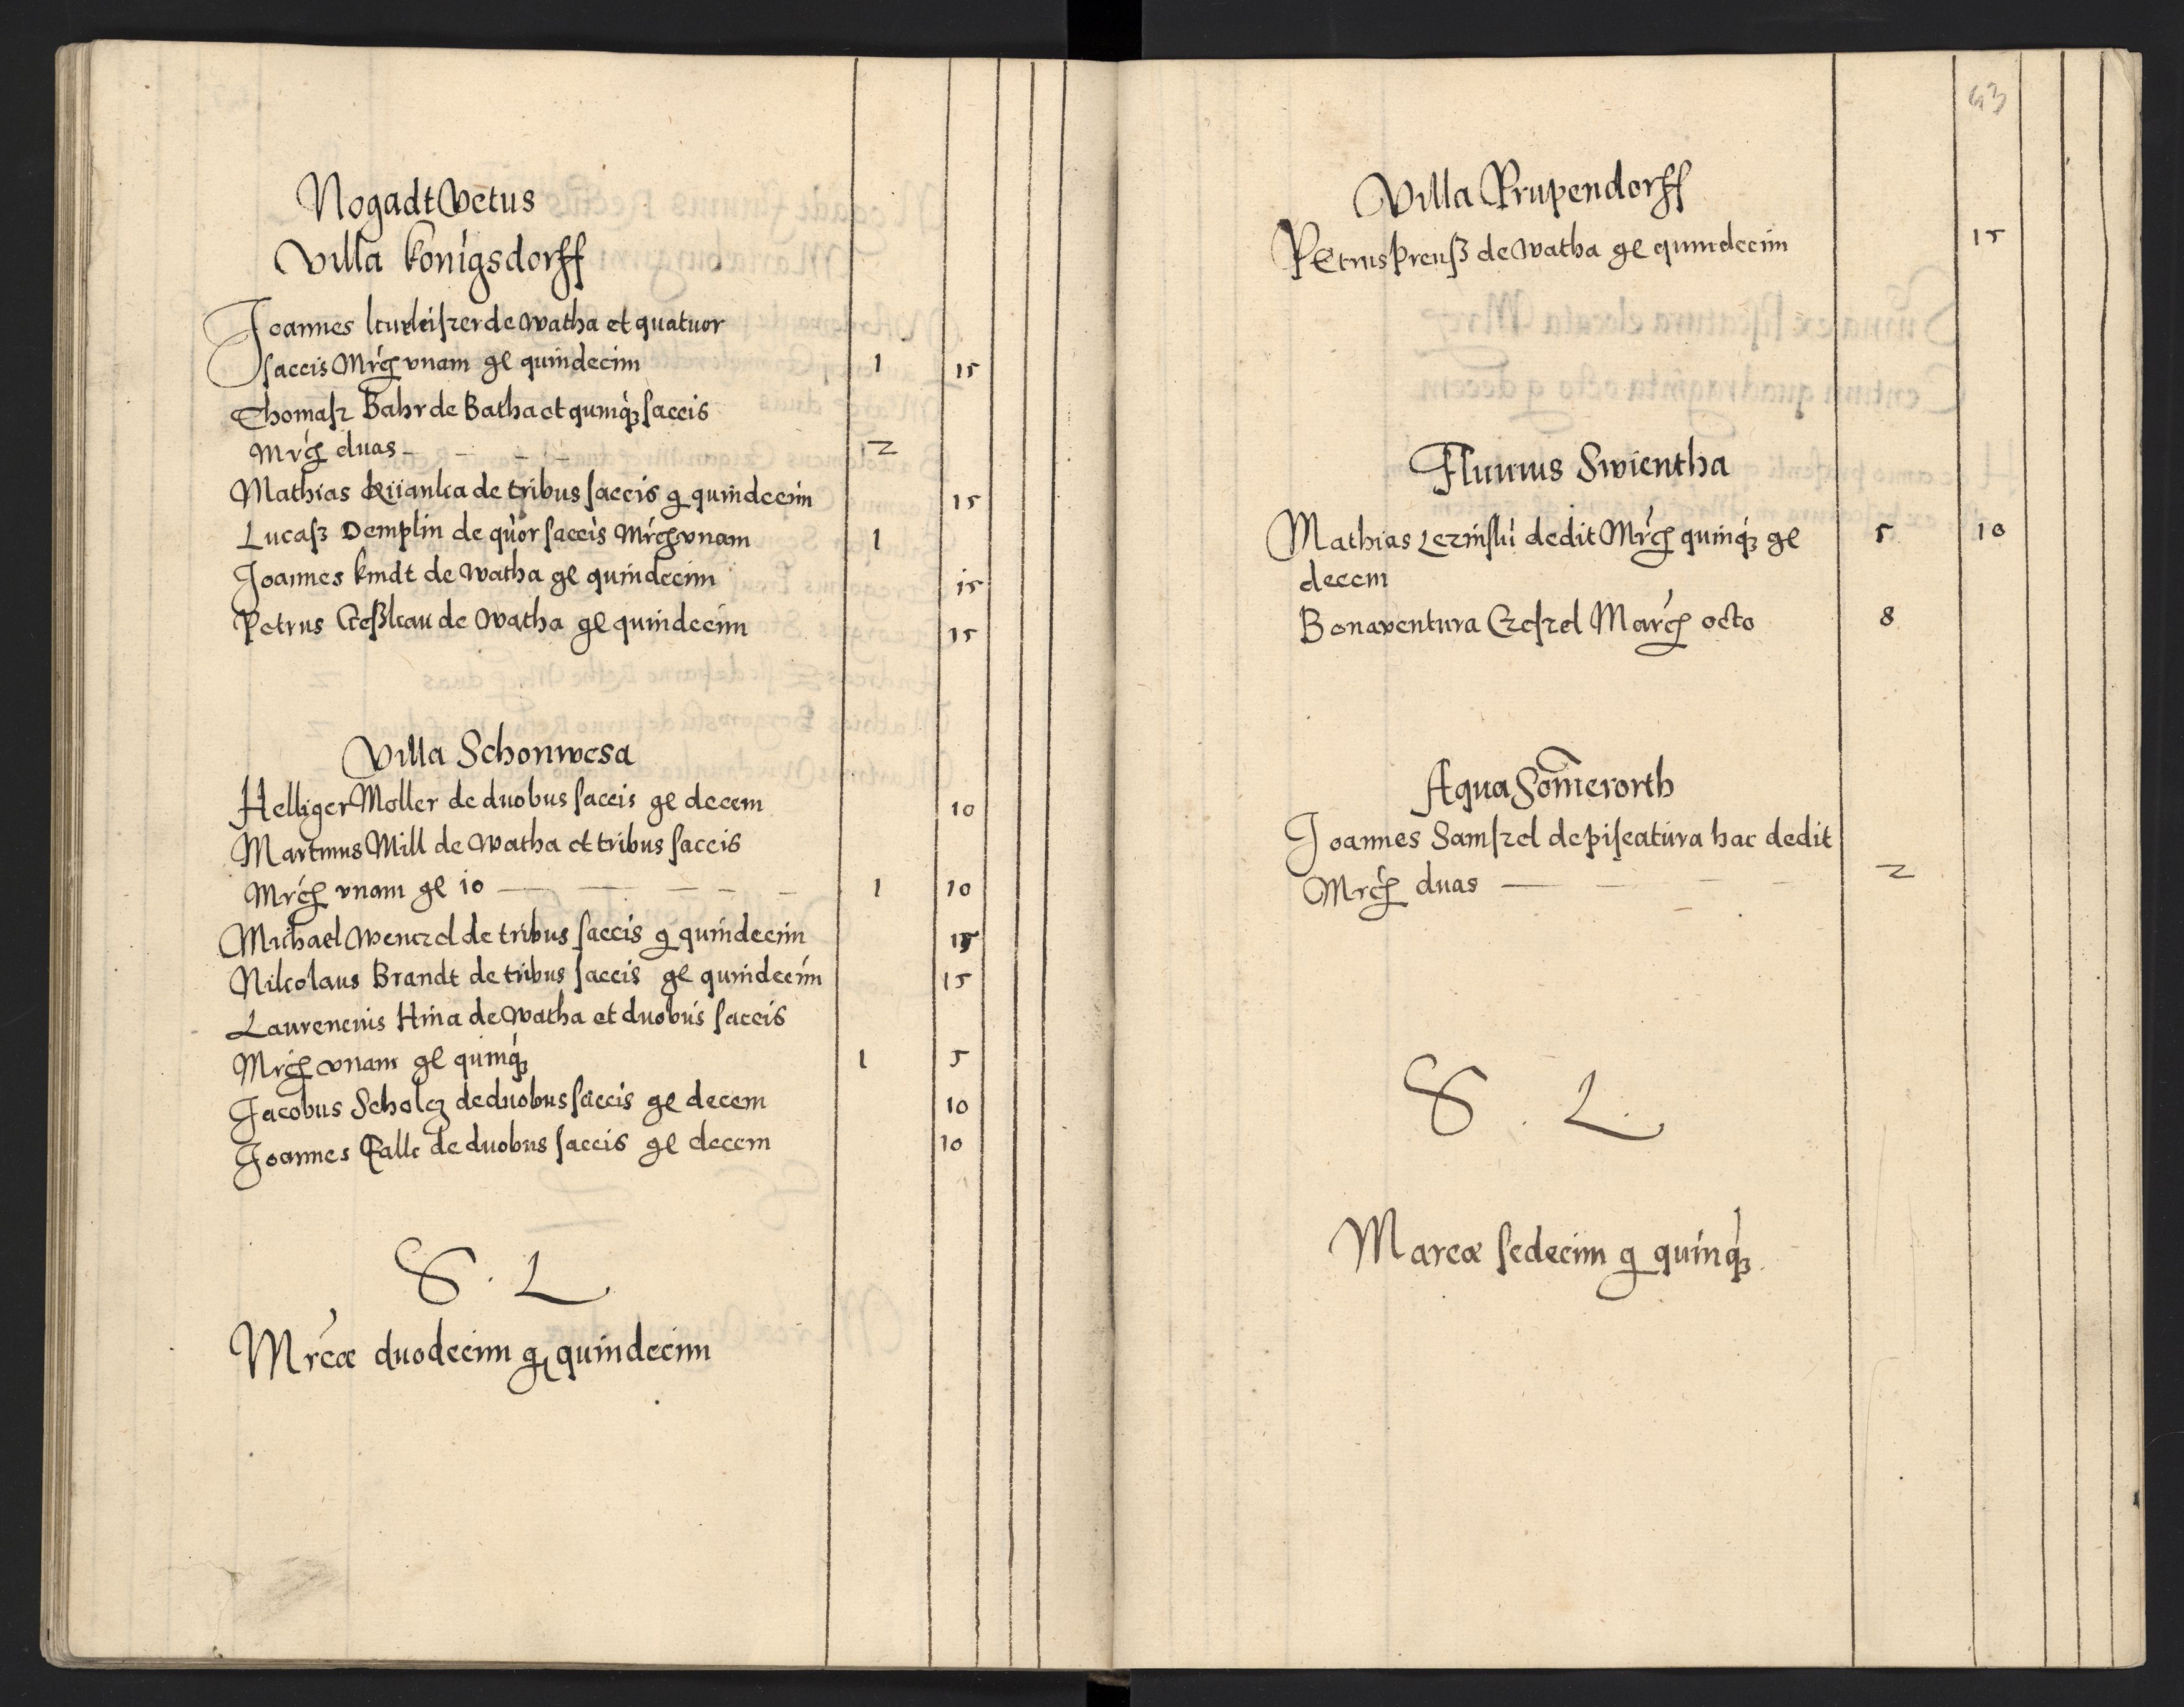 Nogadt Vetus
Villa konigsdorff
Joannes de watha et quatuor
saccis Mrcꝭ vnam gl quindecim 1 15
Thomasz Bahr de Batha et quinqꝫ saccis
Mrcꝭ duas 2
Mathias de tribus saccis g quindecim 15
Lucasz Demplin de quor saccis Mrcꝭ vnam 1
Joannes kindt de watha gl quindecim 15
Petrus de watha gl quindecim 15
Villa Schonwesa
Helliger Moller de duobus saccis gl decem 10
Martinus Mill de watha et tribus saccis
Mrcꝭ vnam gl 10 1 10
Michael Wenczel de tribus saccis g quindecim 15
Nikolaus Brandt de tribus saccis gl quindecim 15
Laurencius Hina de watha et duobus saccis
Mrcꝭ vnam gl quinqꝫ 1 5
Jacobus Scholcz de duobus saccis gl decem 10
Joannes Falk de duobus saccis gl decem 10
S. L
Mrcæ duodecim g quindecim
63
Villa Prupendorff
Petrus Preusz de watha gl quindecim 15
Fluuius Swientha
Mathias dedit Mrcꝭ quinqꝫ gl 5 10
decem
Bonaventura Czeszel Marcꝭ octo 8
Aqua Somerorth
Joannes Samszel de piscatura hac dedit
Mrcꝭ duas 2
S. L.
Marcæ sedecim g quinqꝫ